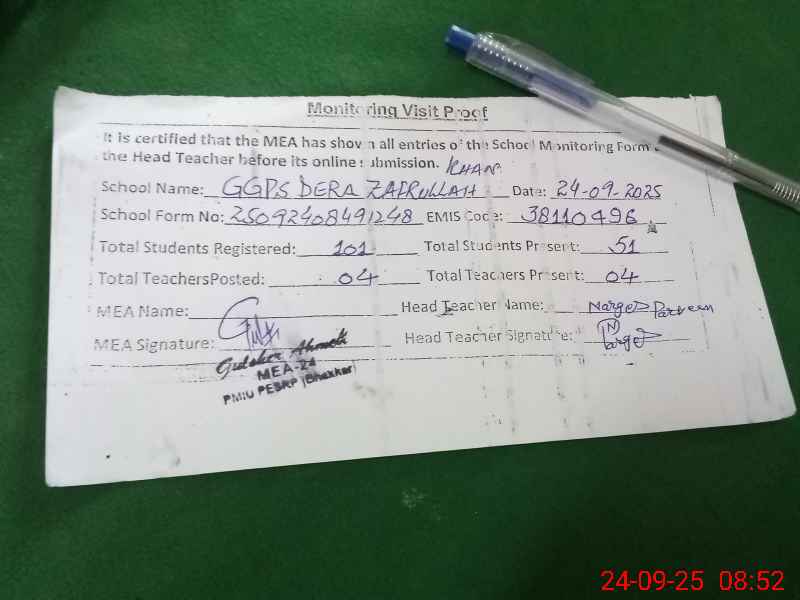 Monitoring Visit Proof
It is certified that the MEA has shown all entries of the School Monitoring Form
the Head Teacher before its online submission.
KHAN
School Name: GGPS DERA ZAFRULLAH Date: 24-09-2025
School Form No: 25092408491248 EMIS Code: 38110496
Total Students Registered: 101 Total Students Present: 51
Total TeachersPosted: 04 Total Teachers Present: 04
MEA Name: Head Teacher Name: Parveen
MEA Signature: Head Teacher Signature:
Ahmed
MEA-24
PMIU PESRP (Bhakkar)
24-09-25 08:52